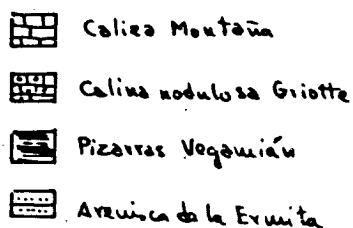 Caliza Montaña
Caliza nodulosa Griotte
Pizarras Vegamián
Arenisca de la Ermita